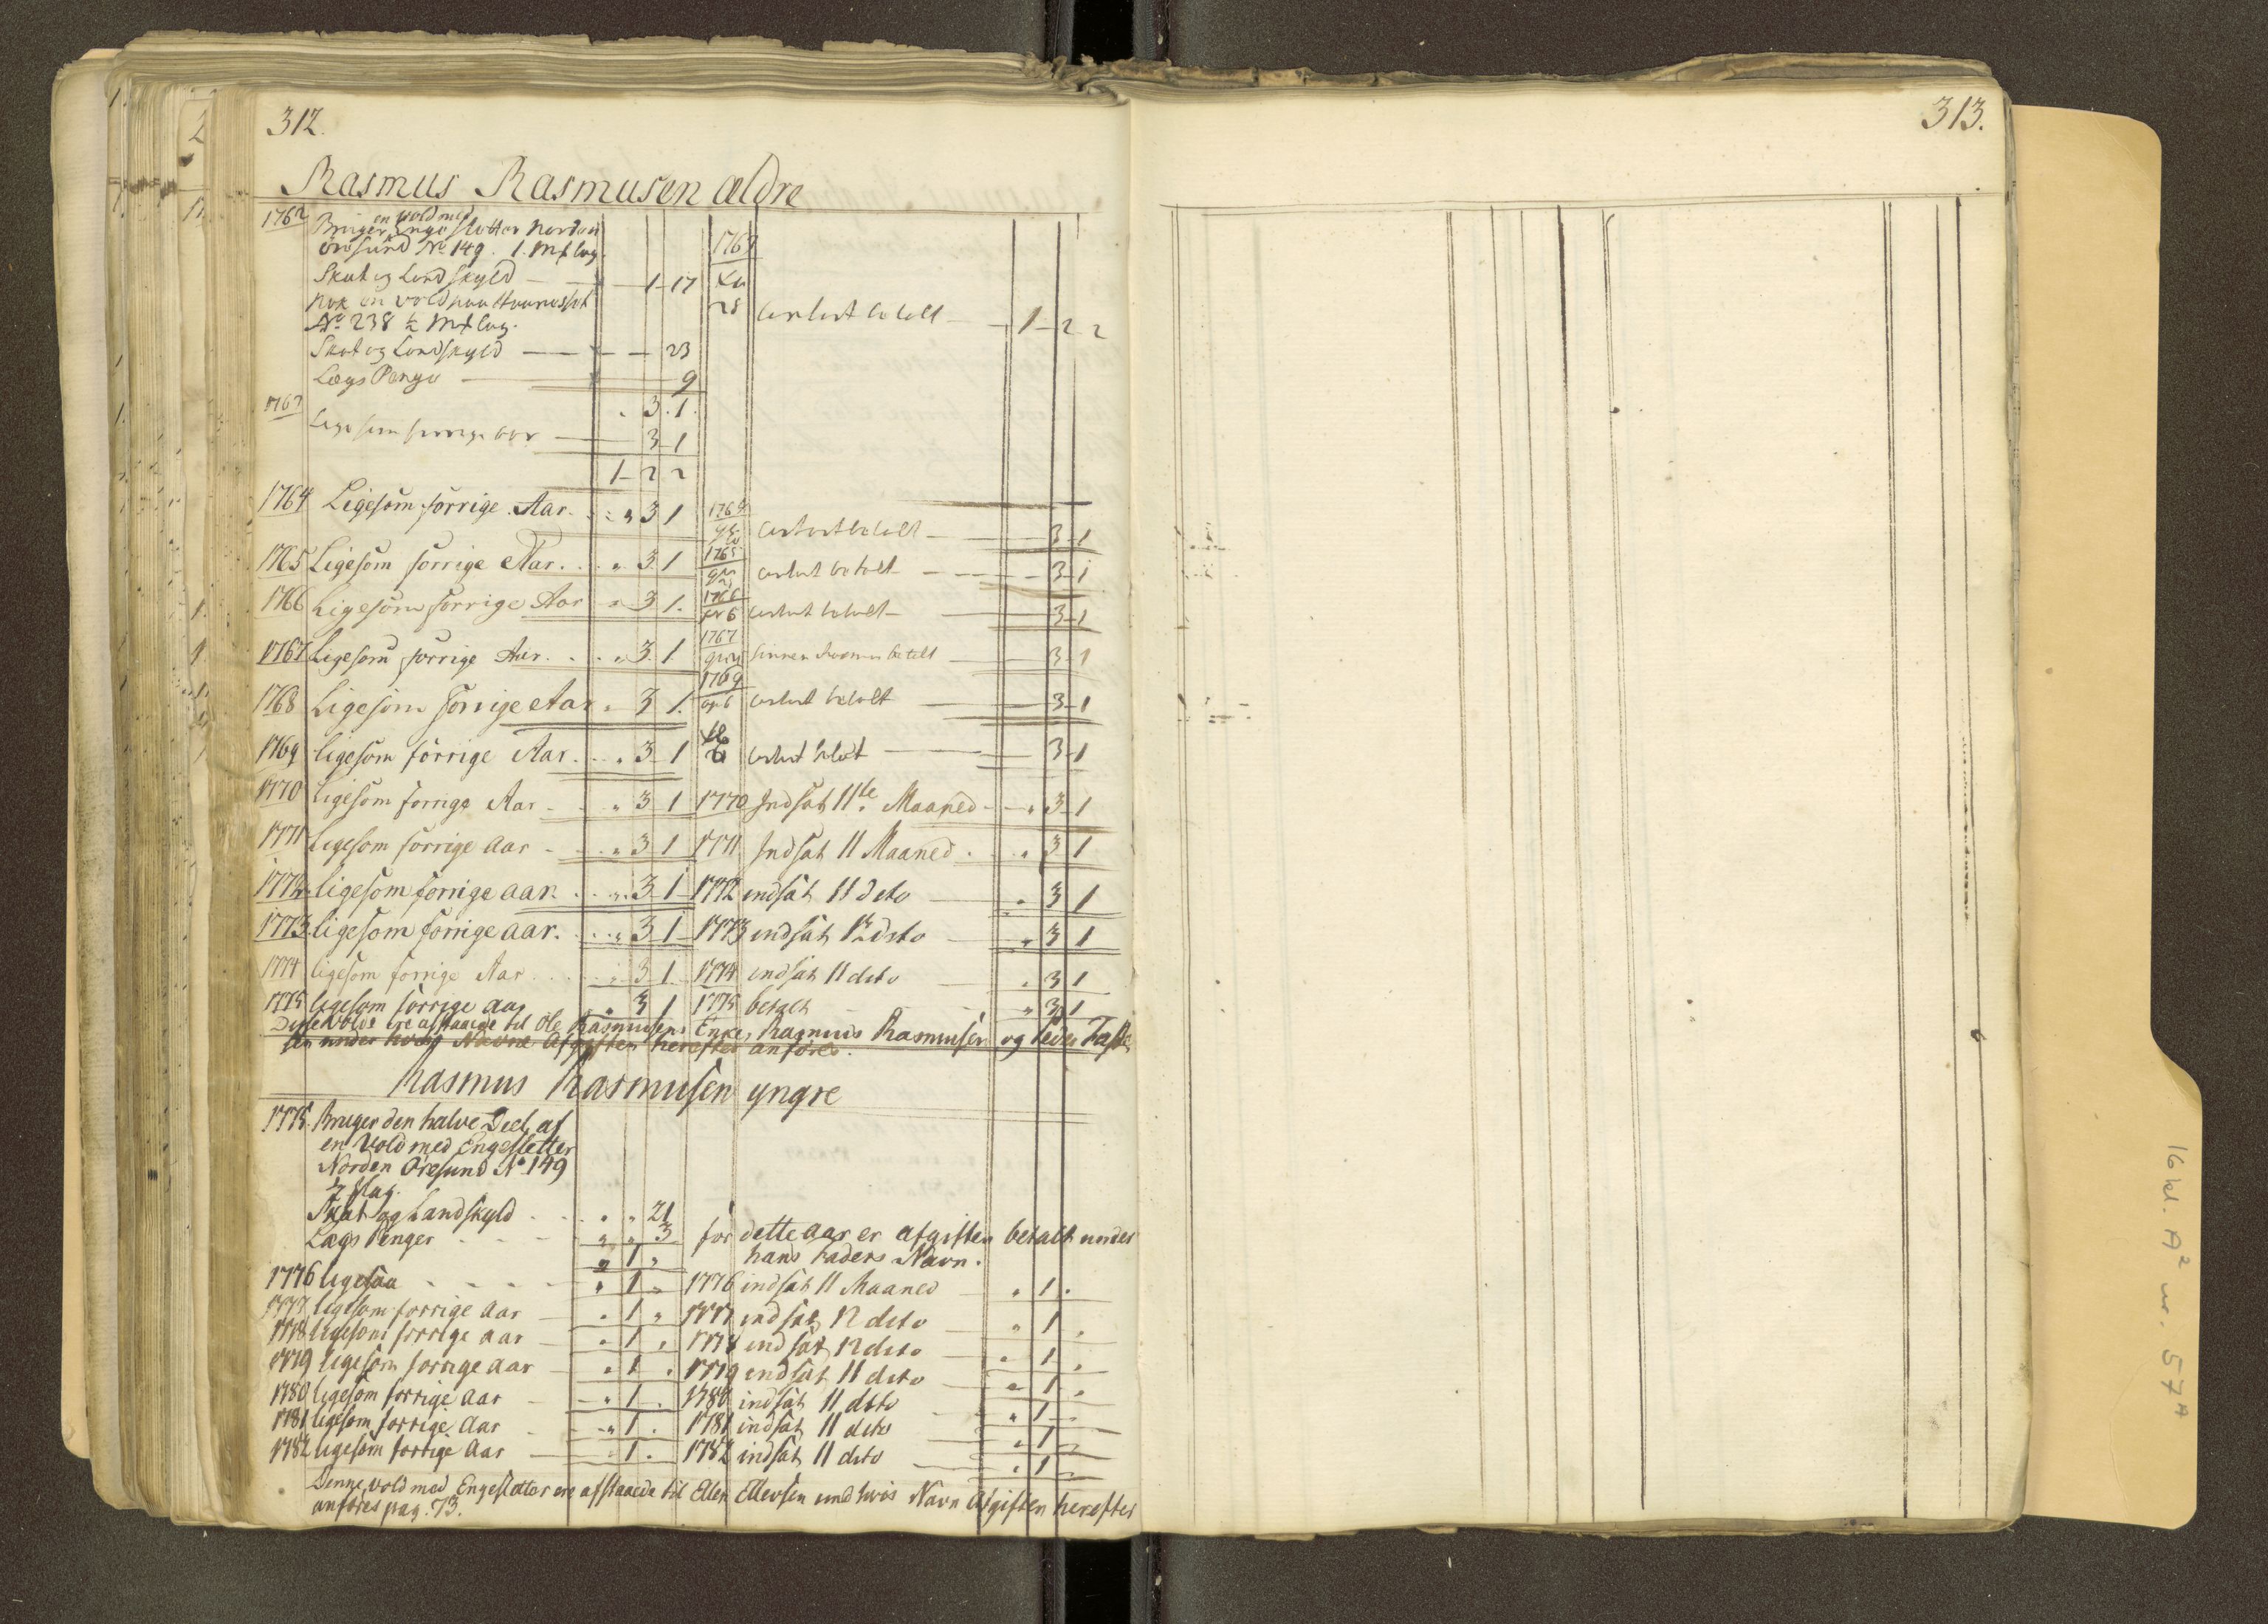 312.
313.
Rasmus Rasmusen ældre
1762 Bruger en vold med Enge Sletter Norden
öresund No 149. 1. Mk lag.
Skat og Landskyld — 1 - 17
nok en vold paa
No 238 ½ Mk lag.
Skat og Landskyld — 23
Lægs Penge — 9
3. 1.
1763 Lige som forrige aar — 3 - 1
1 - 2 - 2
1763 28 betalt — 1 - 2 - 2
1764 Ligesom forrige Aar. 3 1 1764 betalt — 3 - 1
1765 Ligesom forrige Aar. 3 1 1765 betalt — 3 - 1
1766 Ligesom forrige Aar 3 1. 1766 betalt — 3 - 1
1767 Ligesom forrige Aar. 3 1. 1767 betalt — 3 - 1
1768 Ligesom forrige Aar 3 1. 1769 betalt — 3 - 1
1769 ligesom forrige Aar. 3 1 — 3 - 1
1770 ligesom forrige Aar - " 3 1 1770 Indsat 11te Maaned - " 3 - 1
1771 Ligesom forrige aar - " 3 1 1771 Indsat 11 Maaned . " 3 1
1772 ligesom forrige aar. " 3 1 1772 indsat 11 deto — " 3 1
1773 ligesom forrige aar. " 3 1 1773 indsat 12 deto — " 3 1
1774 ligesom forrige Aar " 3 1 1774 indsat 11 deto — " 3 1
1775 ligesom forrige aar " 3 1 1775 betalt " 3 1
Disse volde ere afstaaede til Ole Rasmusens Enke, Rasmus Rasmusen og Peder
sen under hvis Navne Afgiften herefter anföres.
Rasmus Rasmusen yngre
1775. Bruger den halve Deel af
en Vold med Engesletter
Norden Öresund No 149
½ Mlag.
Skat og Landskyld . . " " 21
Lægs Penger - - - " " 3 for dette aar er afgiften betalt under
" 1 " hans Faders Navn.
1776 ligesaa - - - " 1 " 1776 indsat 11 Maaned — " 1 .
1777 ligesom forrige aar — " 1 " 1777 indsat 12 deto — " 1 "
1778 ligesom forrige aar — " 1 " 1778 indsat 12 deto — " 1 "
1779 ligesom forrige aar — " 1 " 1779 indsat 11 deto — " 1 "
1780 ligesom forrige aar — " 1 . 1780 indsat 11 deto — " 1 -
1781 ligesom forrige aar — " 1 . 1781 indsat 11 deto — " 1 -
1782 ligesom forrige aar — " 1 . 1782 indsat 11 deto — " 1 -
Denne vold med Engesletter ere afstaaede til Ellen Ellevsen und hvis Navn Afgiften herefter
anföres pag. 73.
16 kl. A2 nr. 57A